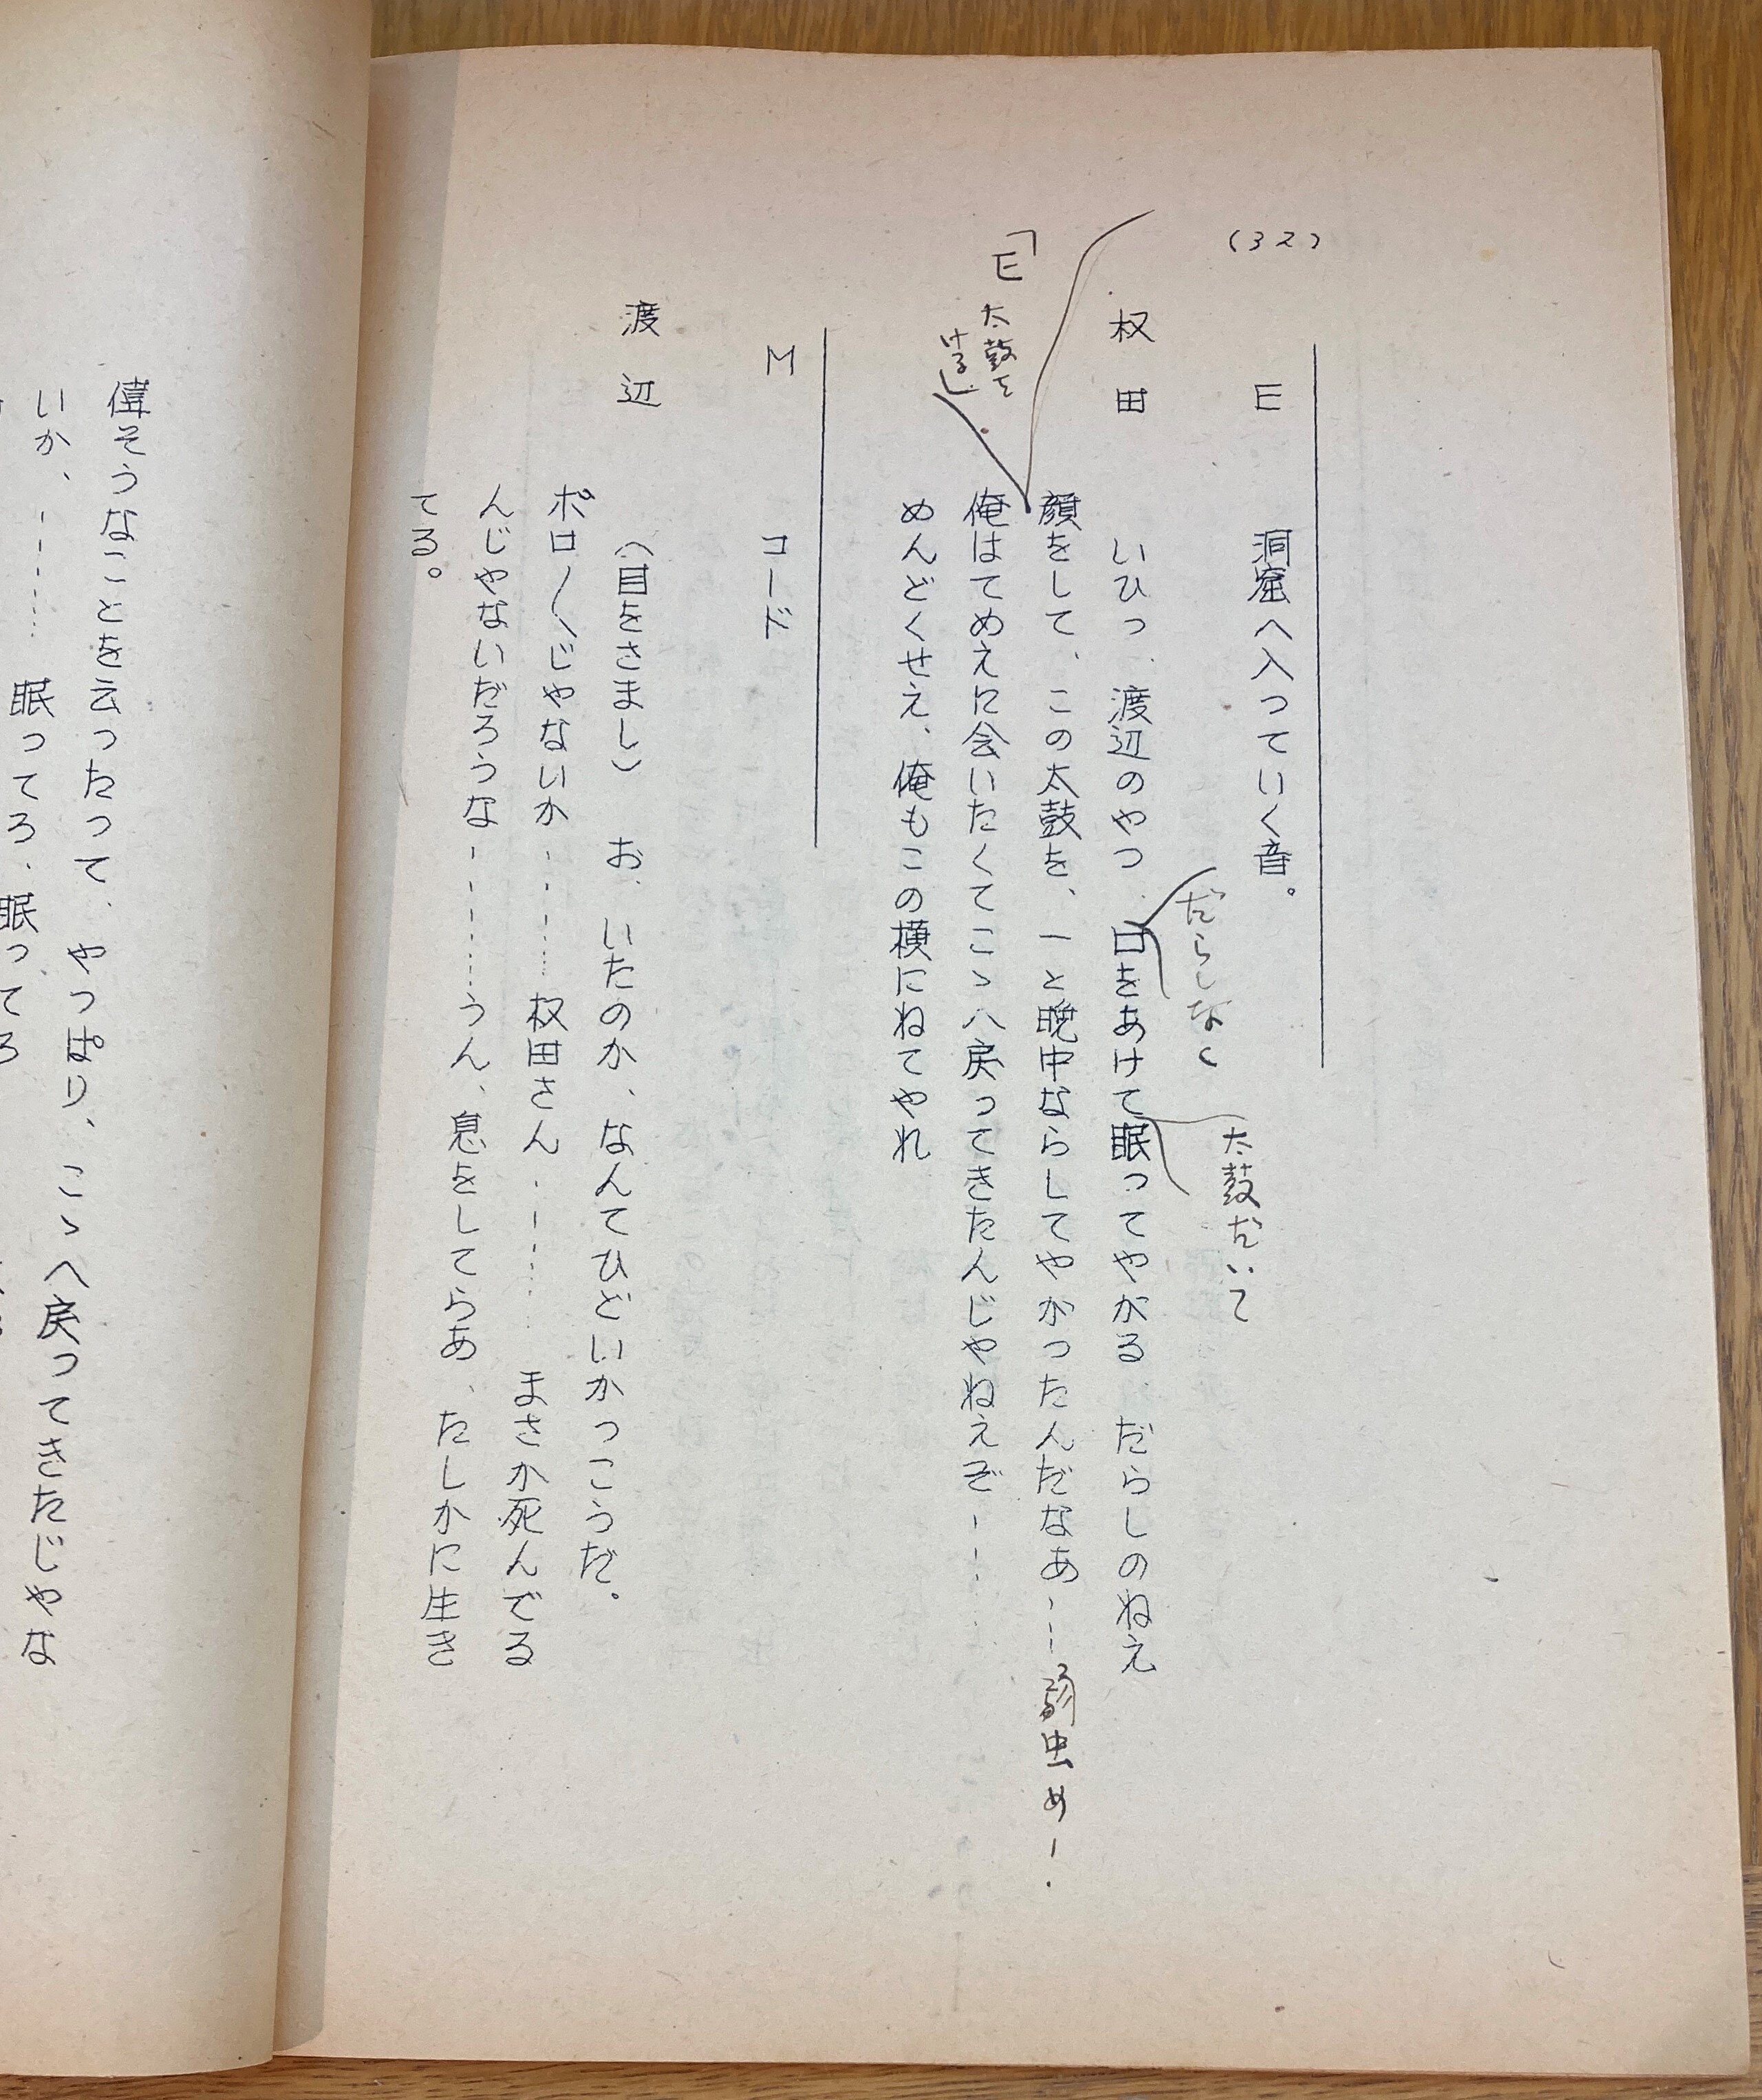 (32)
E　洞窟へ入っていく音。
だらしなく
太鼓だいて
权田　いひっ、渡辺のやつ、口をあけて眠ってやがる、だらしのねえ
顔をして、この太鼓を、一と晩中ならしてやがったんだなあ……弱虫め…
「E 太鼓を
ける」
俺はてめえに会いたくてこゝへ戻ってきたんじゃねえぞ………
めんどくせえ、俺もこの横にねてやれ
M　コード
渡辺　（目をさまし）　お、いたのか、なんてひどいかっこうだ。
ボロ〳〵じゃないか………权田さん………まさか死んでる
んじゃないだろうな………うん、息をしてらあ、たしかに生き
てる。
偉そうなことを云ったって、やっぱり、こゝへ戻ってきたじゃな
いか、………眠ってろ、眠ってろ